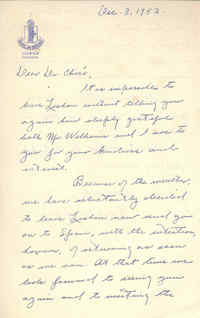 Dec. 3, 1952.
Dear Dr.
It is impossible to
leave Lisbon without telling you
again how deeply grateful
both Mr. Williams and I are to
you for your kindness and
interest.
Because of the weather,
we have reluctantly decided
to leave Lisbon now and go
on to Spain, with the intention,
however, of returning as soon
as we can. At that time we
look forward to seeing you
again and to meeting the